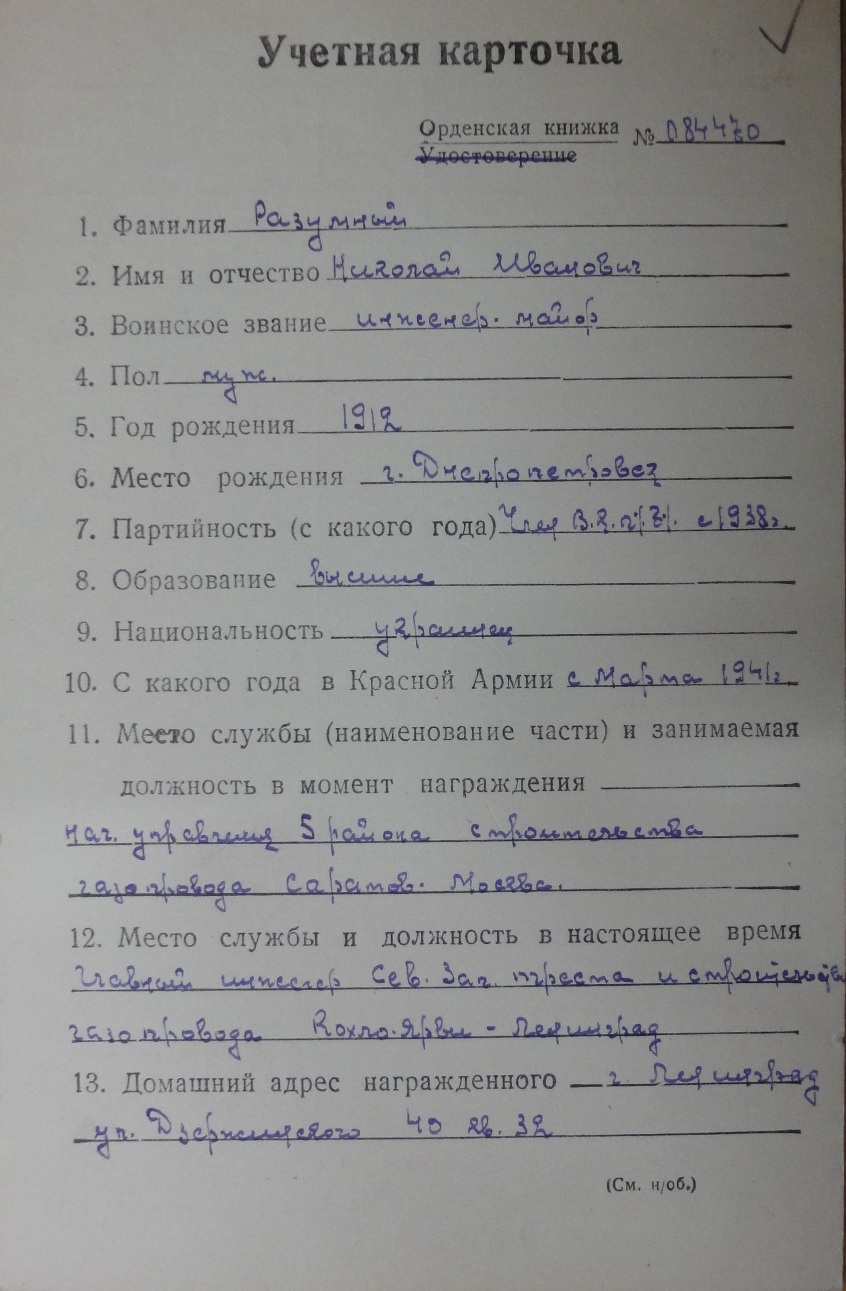 Учетная карточка
Орденская книжка
Удостоверение
№ 084470
1. Фамилия Разумный
2. Имя и отчество Николай Иванович
3. Воинское звание инженер-майор
4. Пол муж.
5. Год рождения 1912
6. Место рождения г. Днепропетровск
7. Партийность (с какого года) Член В.К.П.Б. с 1938г.
8. Образование высшее
9. Национальность украинец
10. С какого года в Красной Армии с Марта 1941г.
11. Место службы (наименование части) и занимаемая
должность в момент награждения
нач. управления 5 района строительства
газопровода Саратов-Москва.
12. Место службы и должность в настоящее время
Главный инженер Сев. Зап. треста и
газопровода Кохла-Ярви - Ленинград
13. Домашний адрес награжденного г. Ленинград
ул. Дзержинского 40 кв. 32
(См. н/об.)